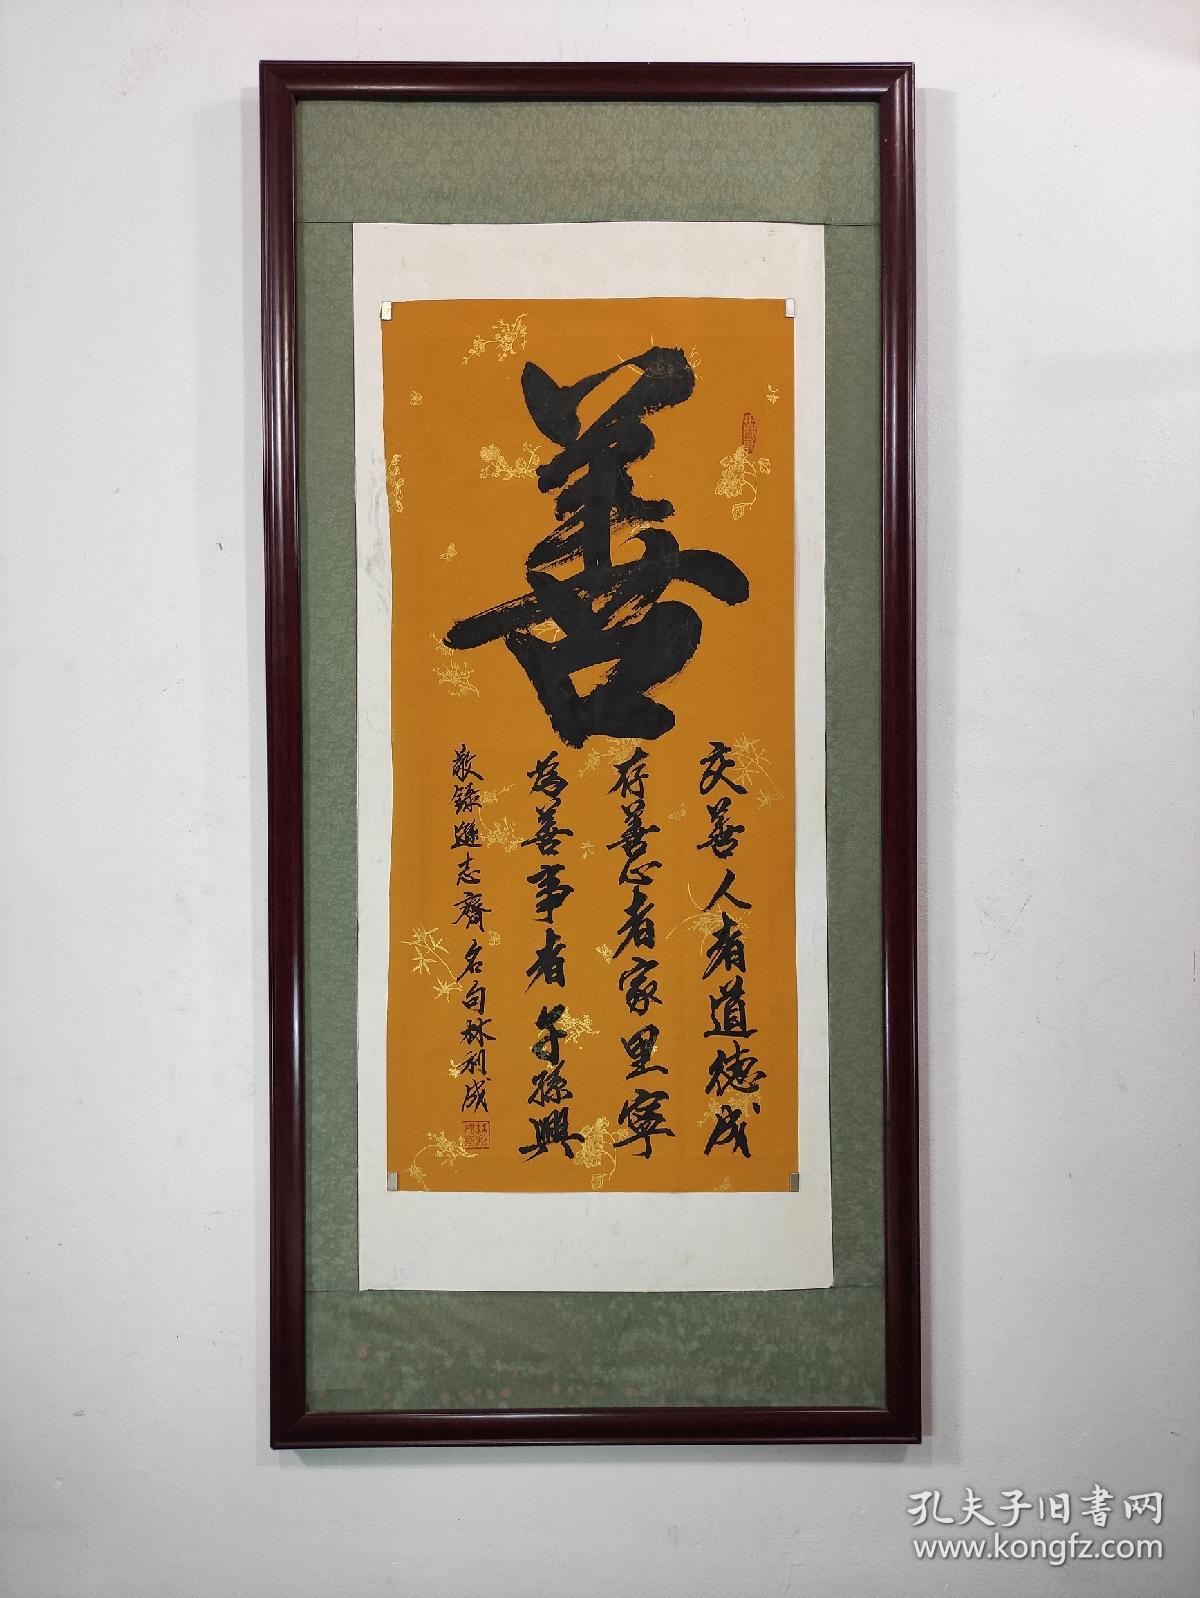 善
交善人者道德成
存善心者家里寧
為善事者子孫興
敬錄遜志齋名句林利成
孔夫子旧书网
www.kongfz.com